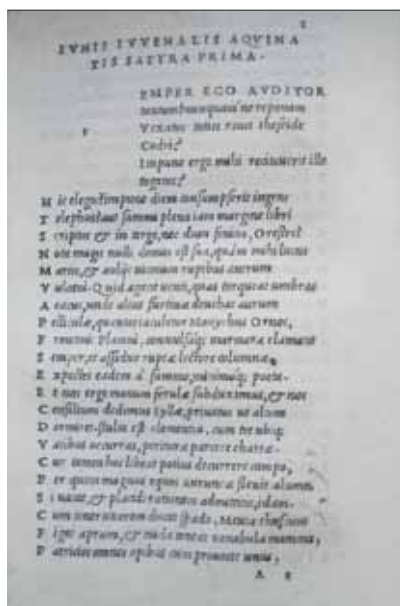 IVNII IVVENALIS AQVINA
TIS SATYRA PRIMA.
EMPER EGO AVDITOR
tantum? nunquam ne reponam
S
Vexatus toties rauci theseide
Codri?
Impune ergo mihi recitauerit ille
togatas?
H ic elegos? impune diem consumpserit ingens
T elephus? aut summi plena iam margine libri
S criptus, & in tergo, nec dum finitus, Orestes?
N ota magis nulli domus est sua, quàm mihi lucus
M artis, & æoliis uicinum rupibus antrum
V ulcani. Quid agant uenti, quas torqueat umbras
A eacus, unde alius furtiuæ deuehat aurum
P elliculæ, quantas iaculetur Monychus Ornos,
F rontonis platani, conuulsaq; marmora clamant
S emper, et assiduo ruptæ lectore columnæ.
E xpectes eadem à summo, minimoq; poeta.
E t nos ergo manum ferulæ subduximus, & nos
C onsilium dedimus Syllæ, priuatus ut altum
D ormiret. stulta est clementia, cum tot ubiq;
V atibus occurras, perituræ parcere chartæ.
C ur tamen hoc libeat potius decurrere campo,
P er quem magnus equos auruncæ flexit alumnus,
S i uacat, & placidi rationem admittitis, edam.
C um tener uxorem ducat spado, Meuia thuscum
F igat aprum, & nuda teneat uenabula mamma,
P atricios omnes opibus cum prouocet unus,